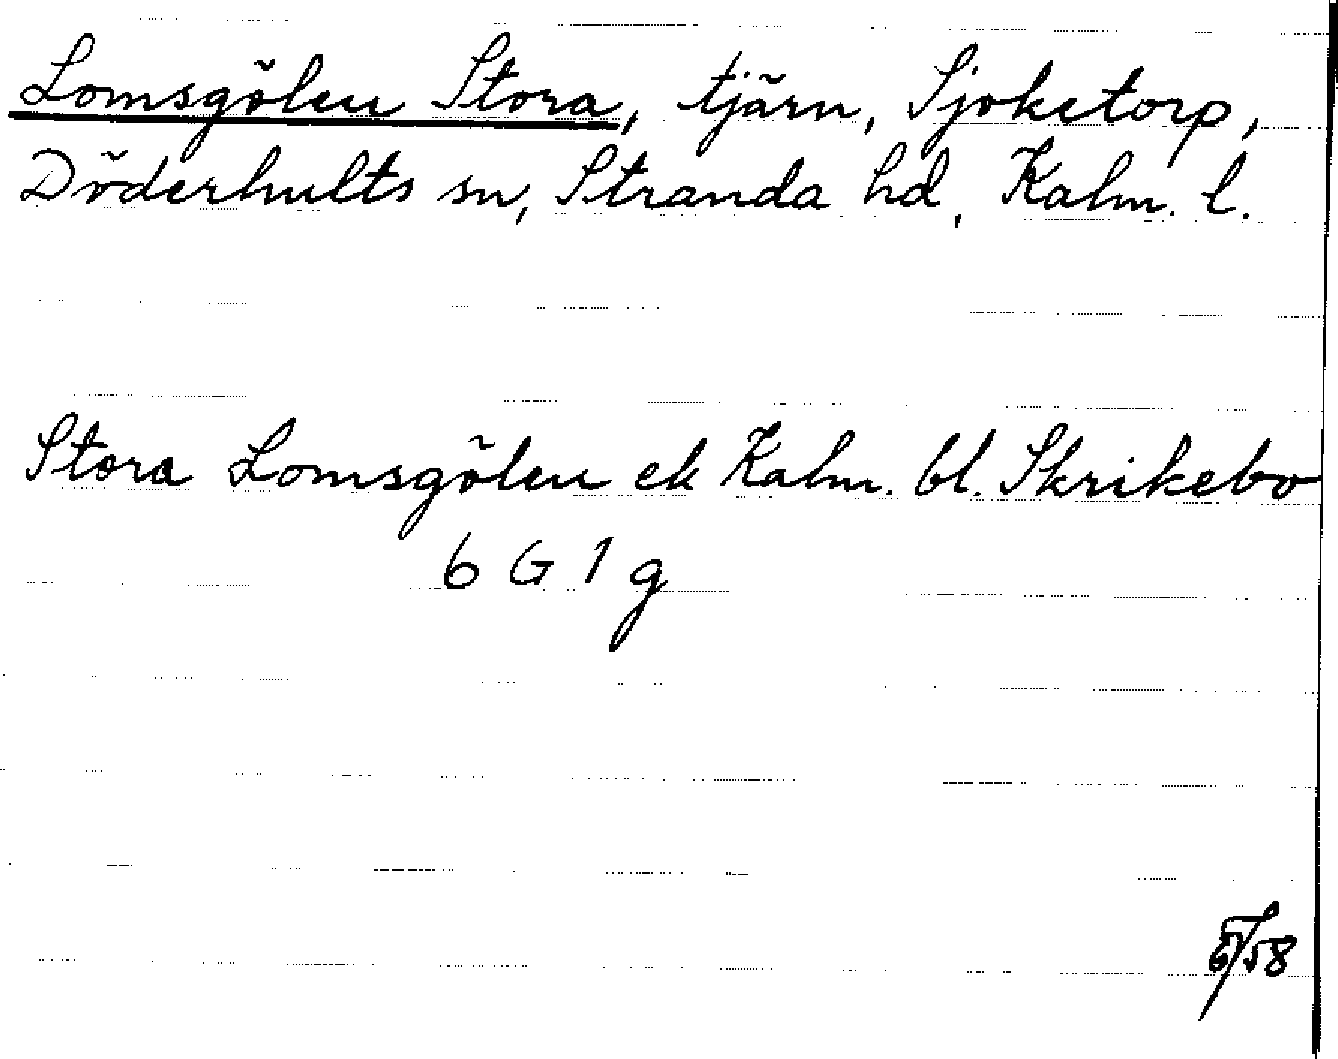 Lomsgölen Stora, tjärn, Sjoketorp,
Döderhults sn, Stranda hd, Kalm. l.
Stora Lomsgölen ek Kalm. bl. Skrikebo
6 G 1 g